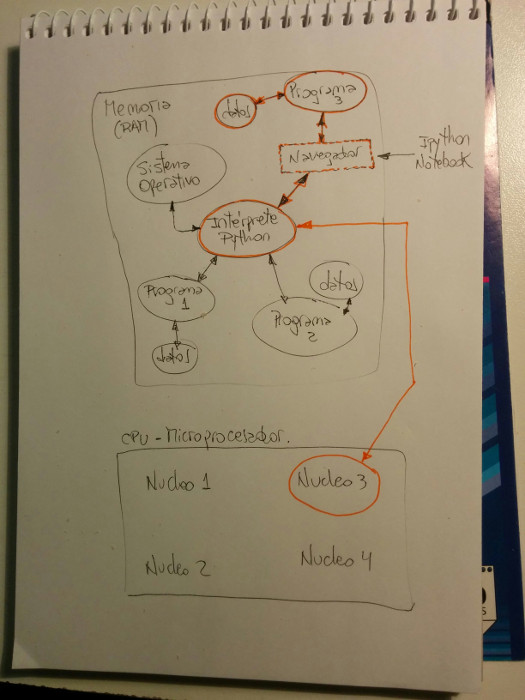 Memoria
(RAM)
Programa
3
datos
Navegador
Ipython
Notebook
Sistema
Operativo
Intérprete
Python
Programa
1
datos
datos
Programa
2
CPU - Microprocesador.
Nucleo 1
Nucleo 3
Nucleo 2
Nucleo 4